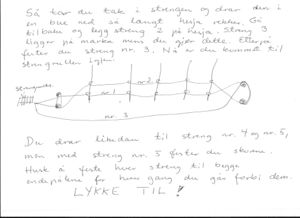 Så tar du tak i strengen og drar den i
en bue ned så langt hesja rekker. Gå
tilbake og legg streng 2 på hesja. Streng 3
ligger på marka mens du gjør dette. Etterpå
fester du streng nr. 3. Nå er du kommet til
strengrullen igjen.
strengrullen
nr 2
nr 1
nr. 3
Du drar likedan til streng nr. 4 og nr. 5,
men med streng nr. 5 fester du skorne.
Husk å feste hver streng til begge
endepålene for hver gang du går forbi dem.
LYKKE TIL!